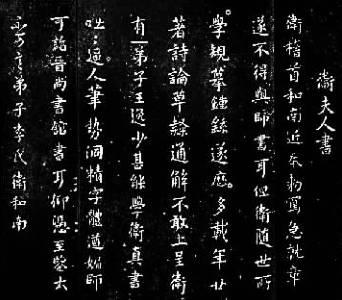 衛夫人書
衛稽首和南近奉勑寫急就章
遂不得與師書耳但衛隨世所
學規摹鍾繇遂歷多載年廿
著詩論草隸通解不敢上呈衛
有一弟子王逸少甚能學衛真書
咄々逼人筆勢洞精字體遒媚師
可詣晉尚書館書耳仰憑至鑒大
不可言弟子李氏衛和南